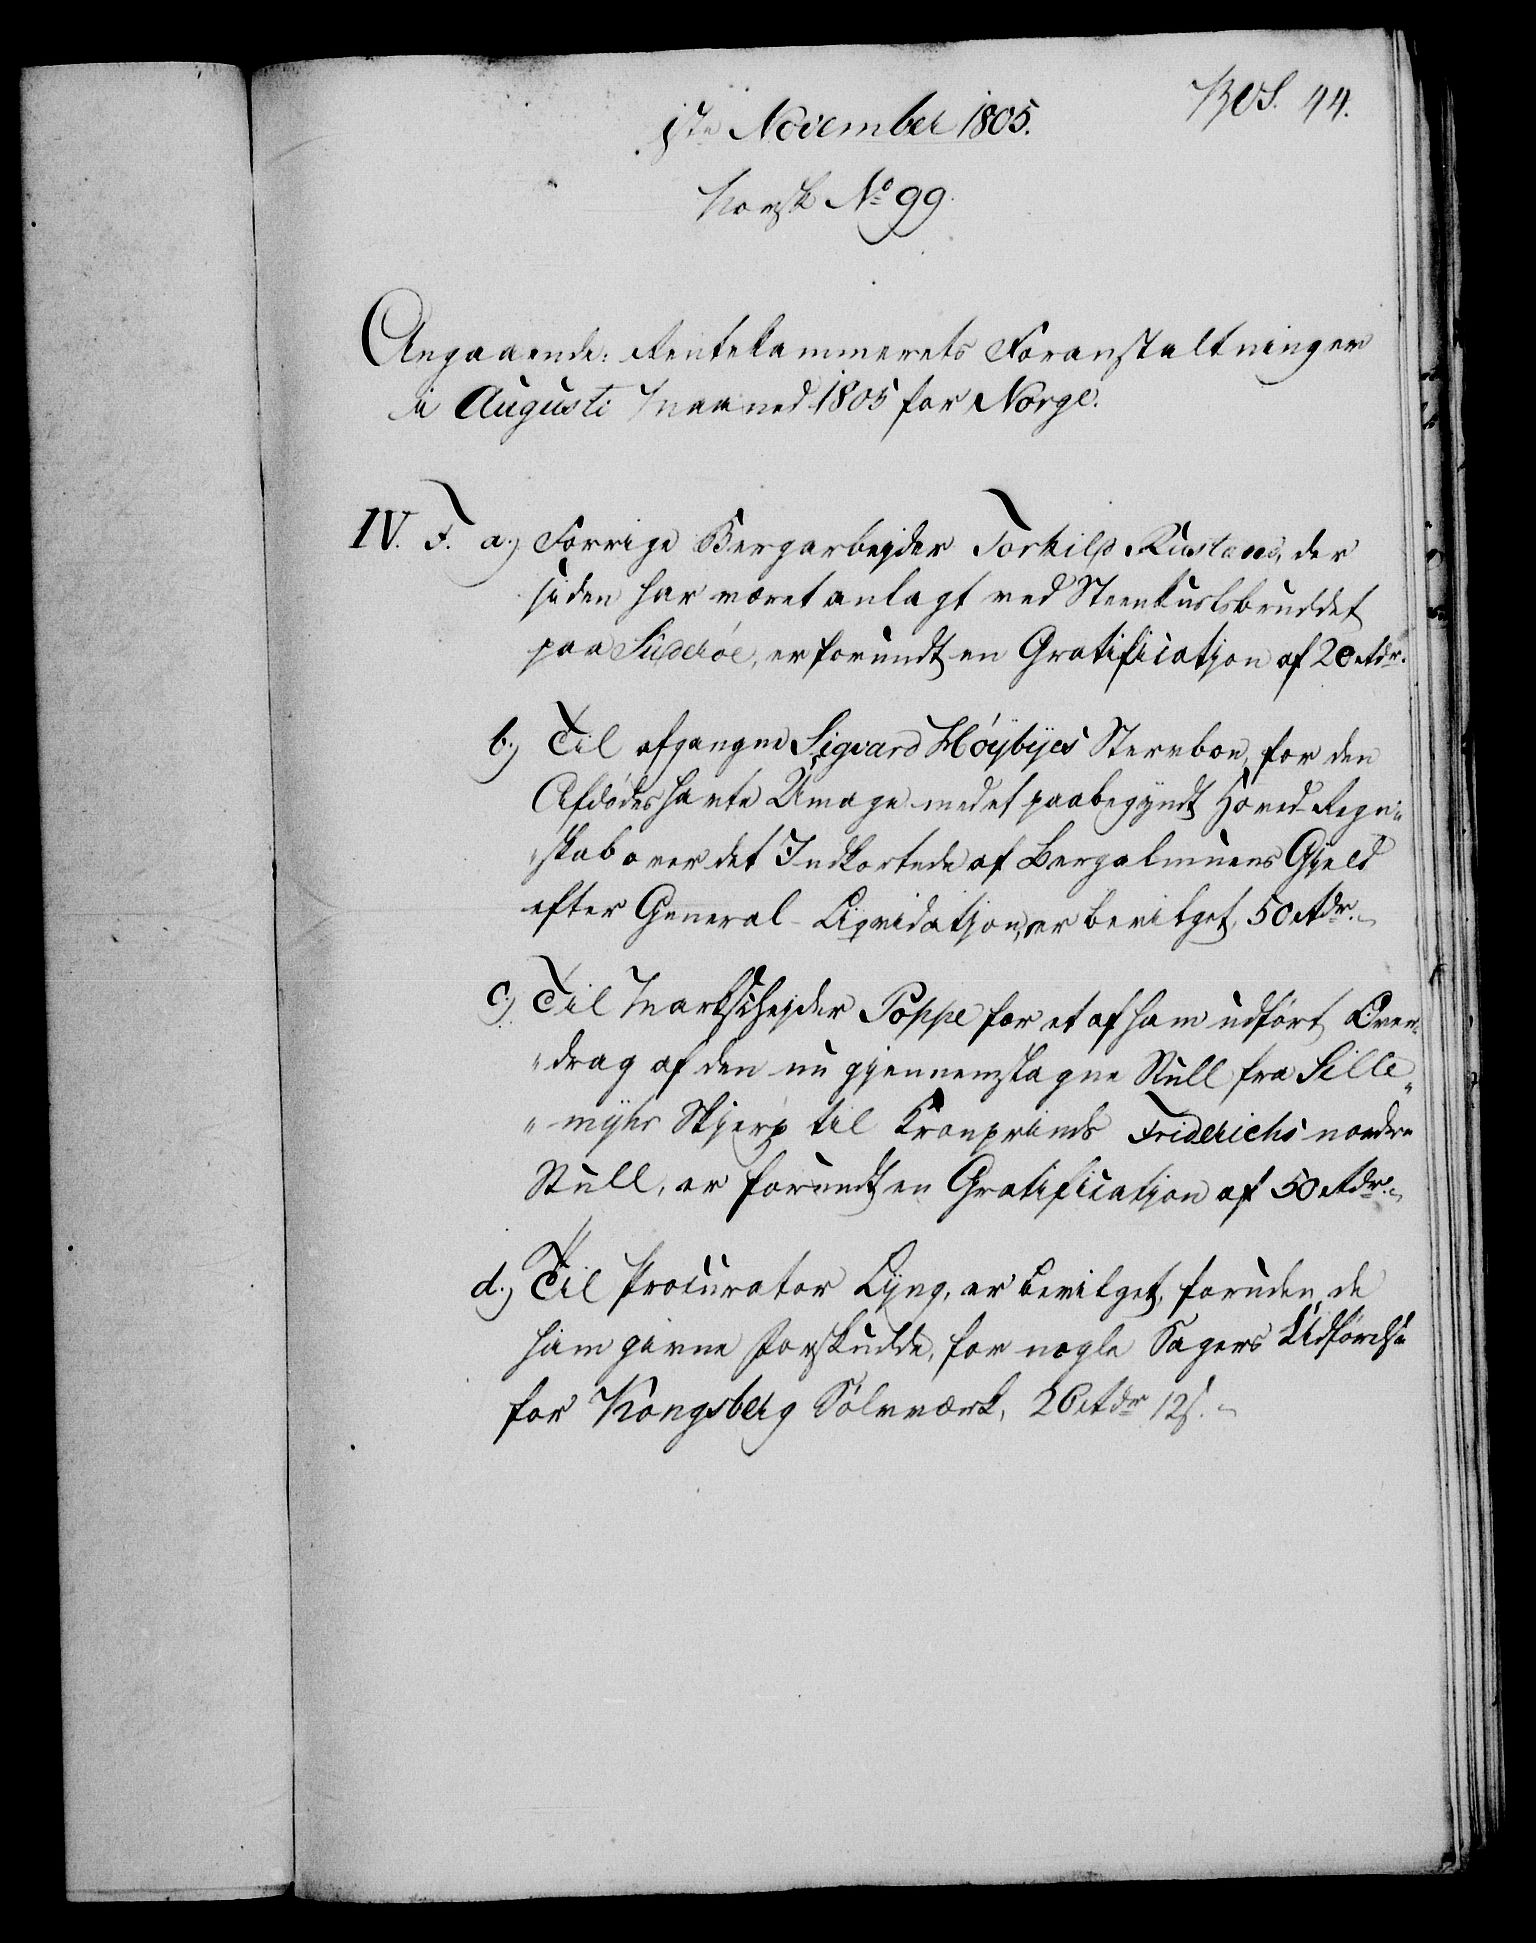 1ste November 1805.
Res. 44.
Norsk No 99.
Angaaende: Rentekammerets Foranstaltninger
i Augusti Maaned 1805 for Norge.
IV. F. a.) Forrige Bergarbejder Torkild Rustans, der
siden har været anlagt ved Steenkulsbruddet
paa Suderøe, er forundt en Gratification af 20 Rdr.
b.) Til afgangne Sigvard Høybyes Sterboe, for den
Afdødes havte Umage med et paabegyndt Hoved-Regn-
skab over det Indkortede af Bergalmuens Gjeld
efter General-Liqvidation, er bevilget, 50 Rdr.
c.) Til Markschejder Poppe for et af ham udført Over-
drag af den nu gjennemslagne Stull fra Sille-
myhr Skjerp til Kronprinds Friderichs nordre
Stull, er forundt en Gratification af 50 Rdr.
d.) Til Procurator Lyng, er bevilget, foruden de
ham givne Forskudde, for nogle Sagers Udførelse
for Kongsberg Sølvværk, 26 Rdr 12 s.